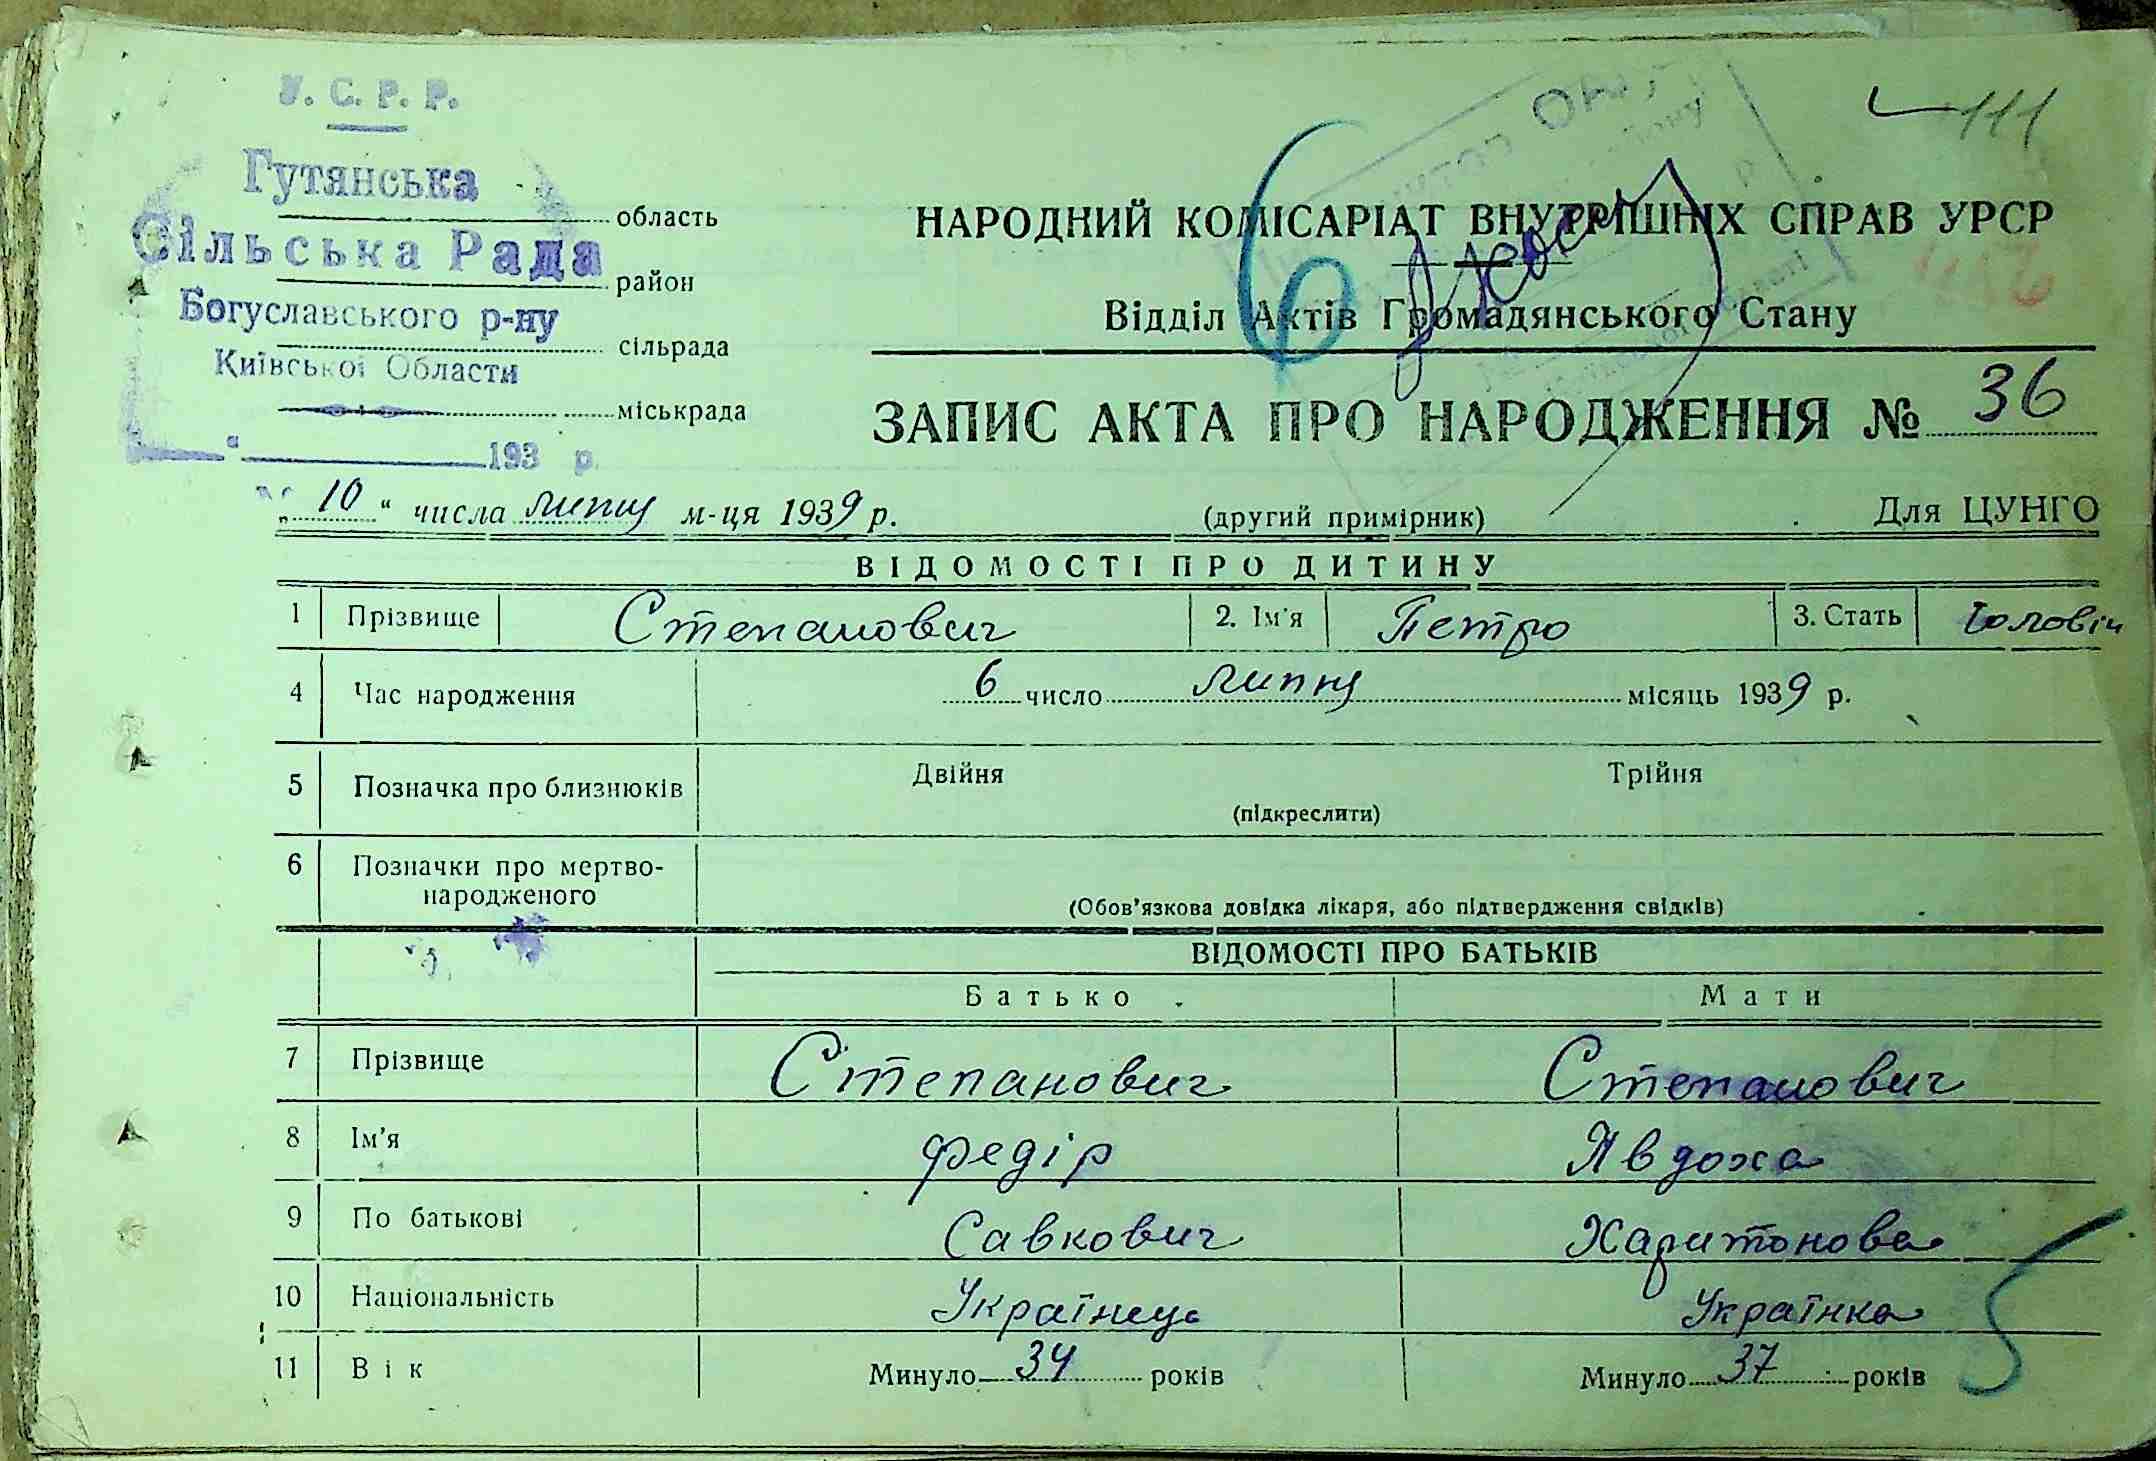 У. С. Р. Р.
Гутянська
область
Сільська Рада
район
Богуславського р-ну
сільрада
Київської Области
міськрада
193 р.
111
НАРОДНИЙ КОМІСАРІАТ ВНУТРІШНІХ СПРАВ УРСР
6
Відділ Актів Громадянського Стану
ЗАПИС АКТА ПРО НАРОДЖЕННЯ № 36
„10“ числа липня м-ця 1939 р.
(другий примірник)
Для ЦУНГО
ВІДОМОСТІ ПРО ДИТИНУ
1 Прізвище Степанович 2. Ім'я Петро 3. Стать Чоловіч
4 Час народження 6 число липня місяць 1939 р.
5 Позначка про близнюків Двійня Трійня
(підкреслити)
6 Позначки про мертво-
народженого
(Обов'язкова довідка лікаря, або підтвердження свідків)
ВІДОМОСТІ ПРО БАТЬКІВ
Батько Мати
7 Прізвище Степанович Степанович
8 Ім'я Федір Явдоха
9 По батькові Савкович Харитонова
10 Національність Українець Українка
11 Вік Минуло 34 років Минуло 37 років
5